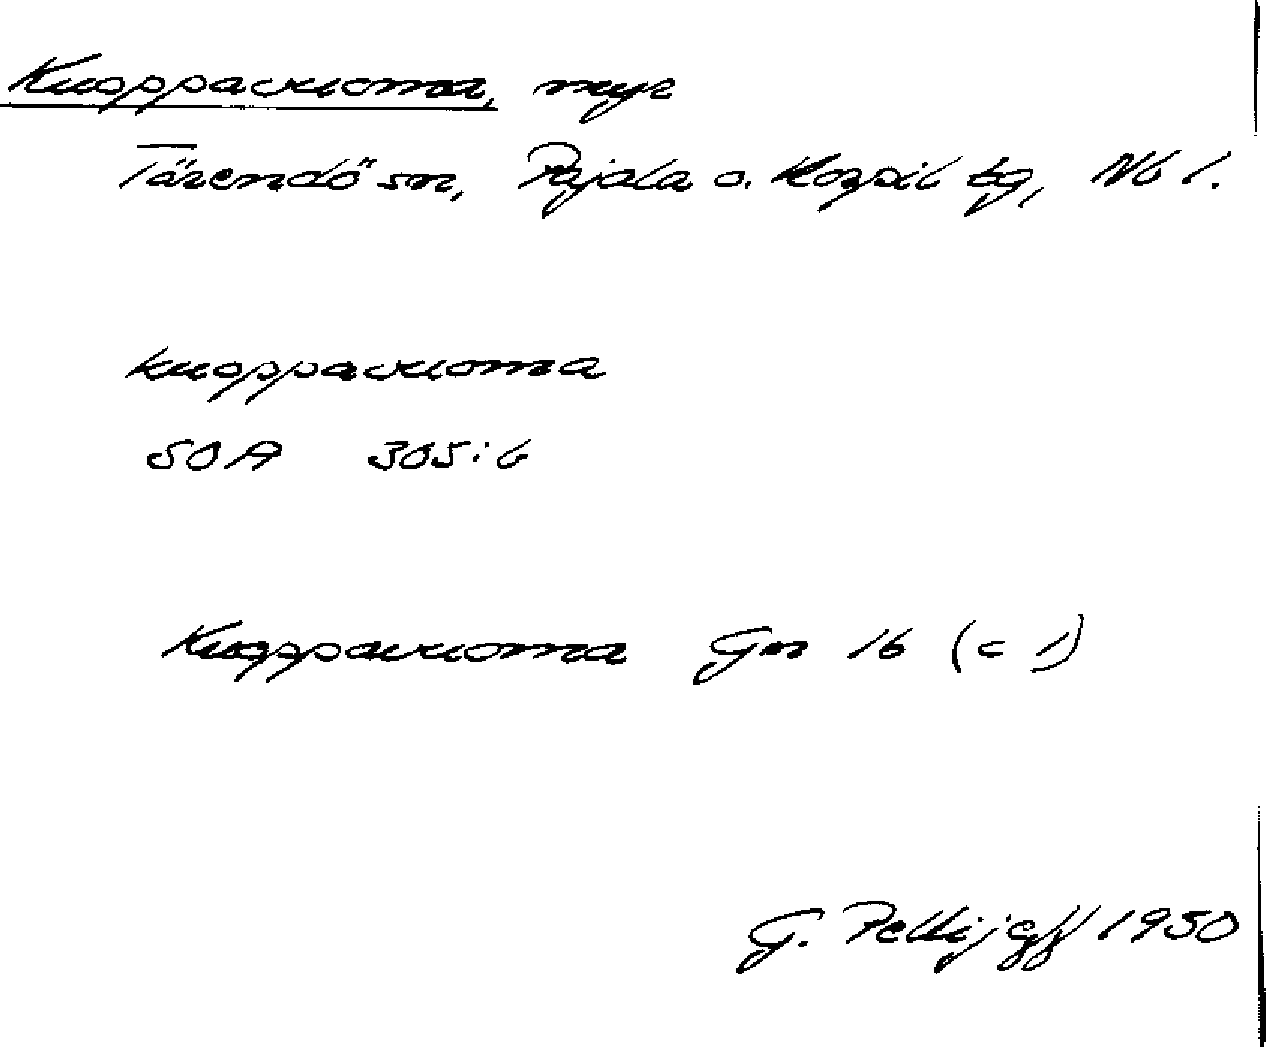 Kuoppavuoma, myr
Tärendö sn, Pajala o. Korpil tg, Nb l.
kuoppavuoma
SOA 305:6
Kuoppavuoma Gm 16 (c 1)
G. Pellijeff 1950